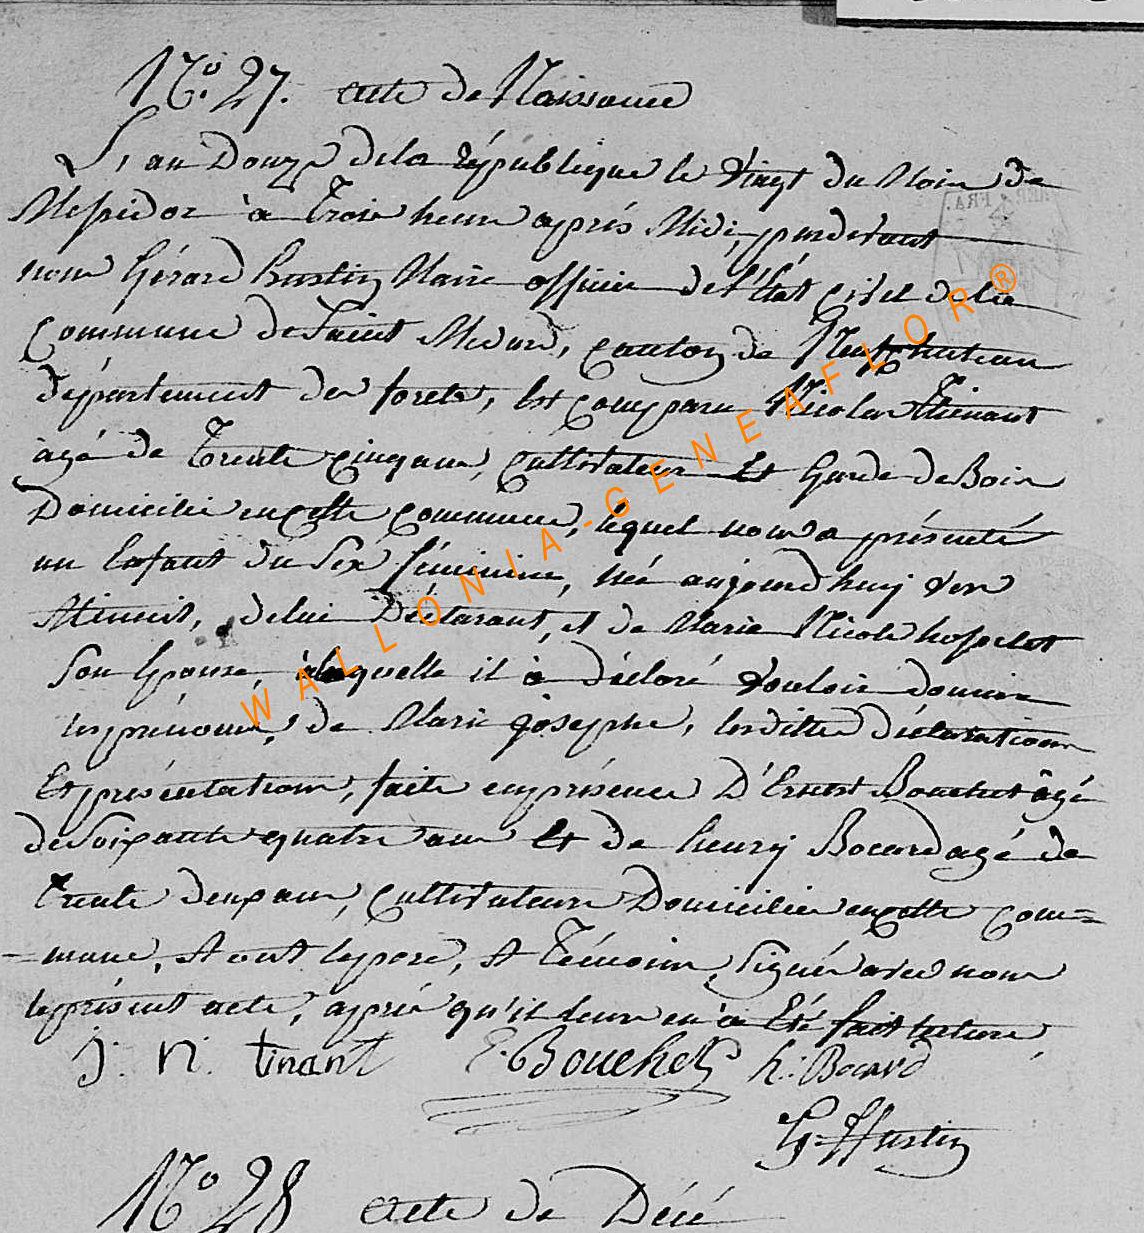 N.° 27. acte de Naissance
L'an Douze de la république le vingt du Mois de
Messidor à Trois heure après Midi, pardevant
nous Gérard hustin Maire officier de l'état civil de la
commune de Saint Medard, canton de Neufchateau
département des forets, Est comparu Nicolas Thinant
àgé de Trente cinq ans, cultivateur Et Garde de Bois
Domicilié en cette commune, lequel nous a présenté
un Enfant du Sex féminine, née aujourdhuy vers
Minuit, de lui Déclarant, et de Marie Nicole hosselet
Son Epouse, à laquelle il à déclaré vouloir donner
les prénoms, de Marie josephe, lesdittes déclarations
Et présentations, faite en présence D'Ernest Bouchet âgé
de Soixante quatre ans Et de henry Bocard agé de
trente deux ans, cultivateurs Domiciliés en cette com=
=mune, et ont le pere, et Témoins, Signés avec nous
le présent acte, après qu'il leurs en à Eté fait lecture
j. n. tinant E. Bouchet h. Bocard
G. Hustin
N.° 28 acte de Décé
WALLONIA-GENEAFLOR®